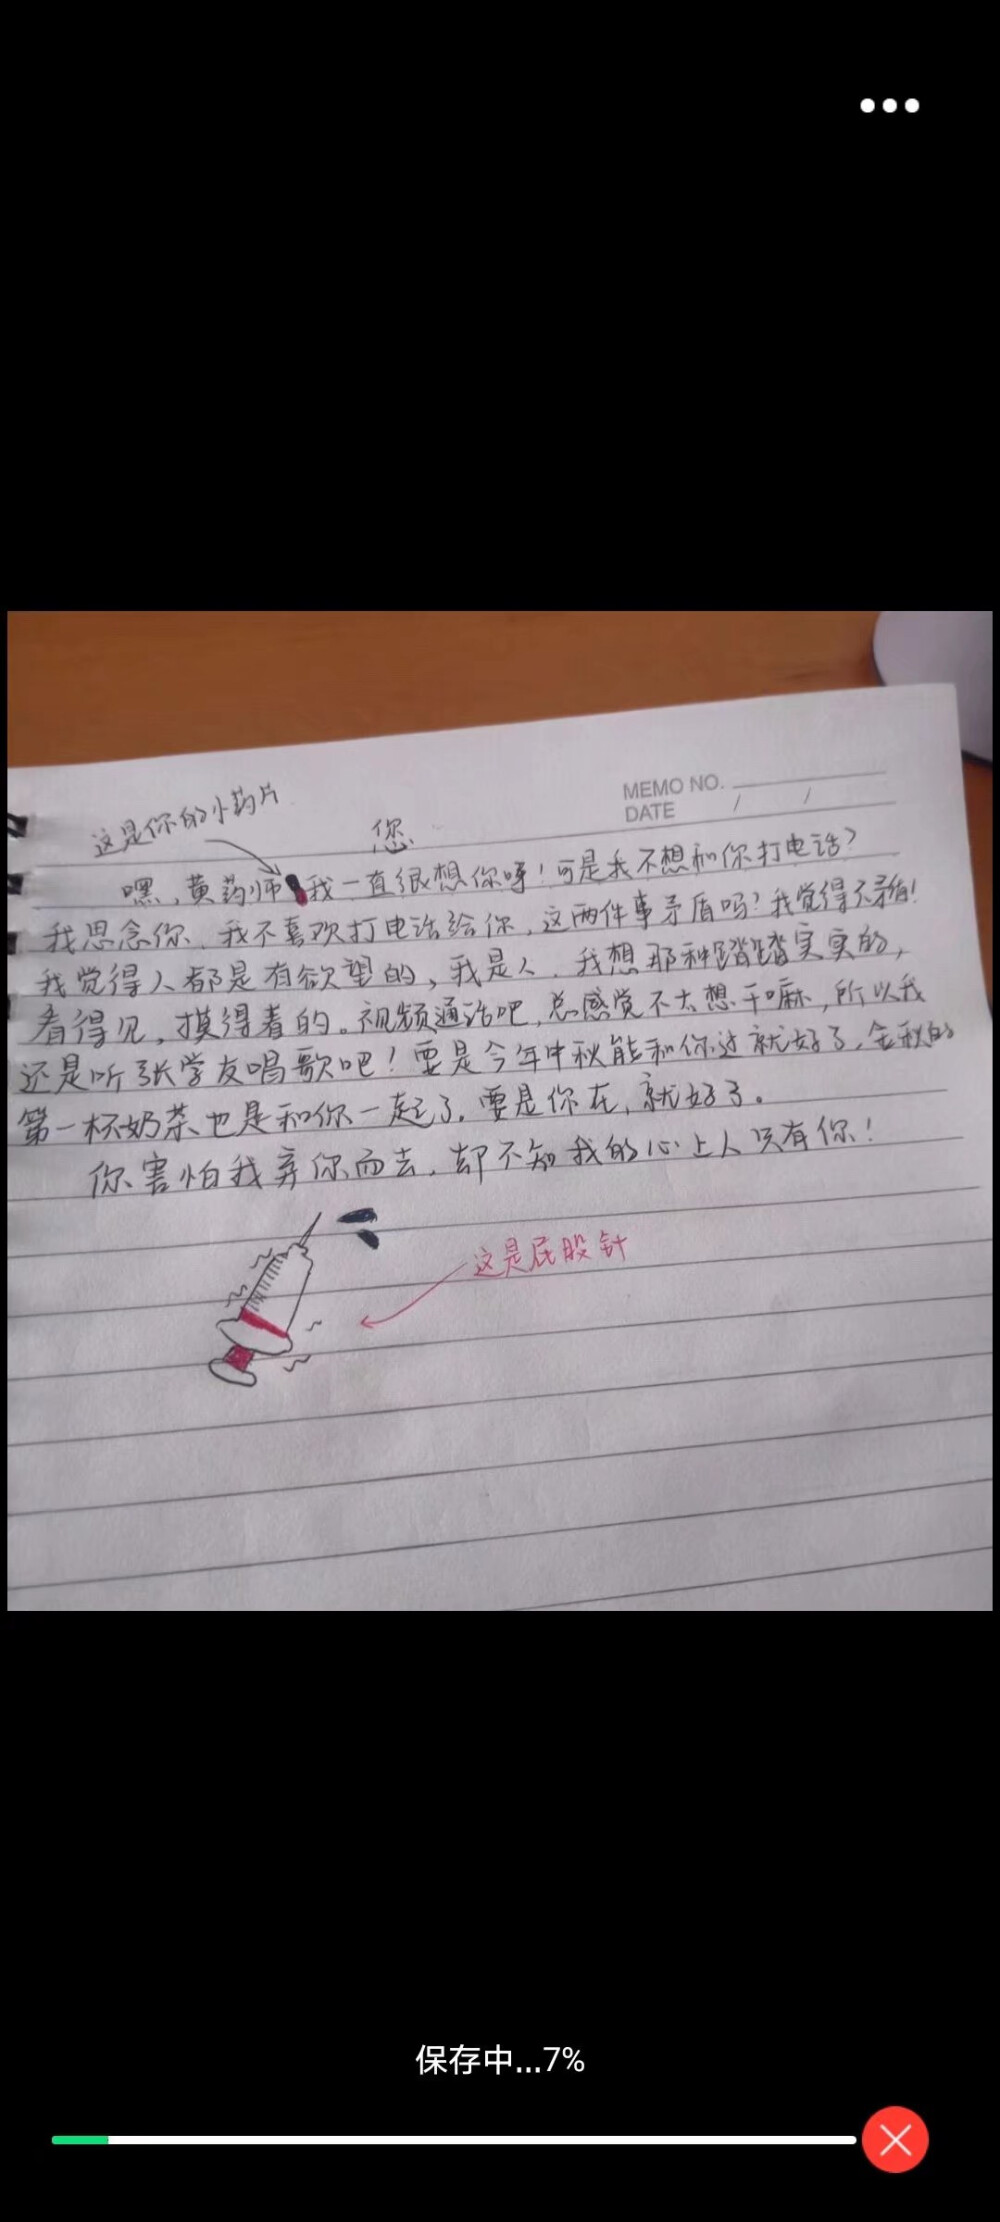 MEMO NO.
DATE / /
这是你的小药片
您
嘿,黄药师 我一直很想你呀!可是我不想和你打电话?
我思念你,我不喜欢打电话给你,这两件事矛盾吗?我觉得不矛盾!
我觉得人都是有欲望的,我是人,我想那种踏踏实实的,
看得见,摸得着的。视频通话吧,总感觉不太想干嘛,所以我
还是听张学友唱歌吧!要是今年中秋能和你过就好了,金秋的
第一杯奶茶也是和你一起了,要是你在,就好了。
你害怕我弃你而去,却不知我的心上人只有你!
这是屁股针
保存中...7%